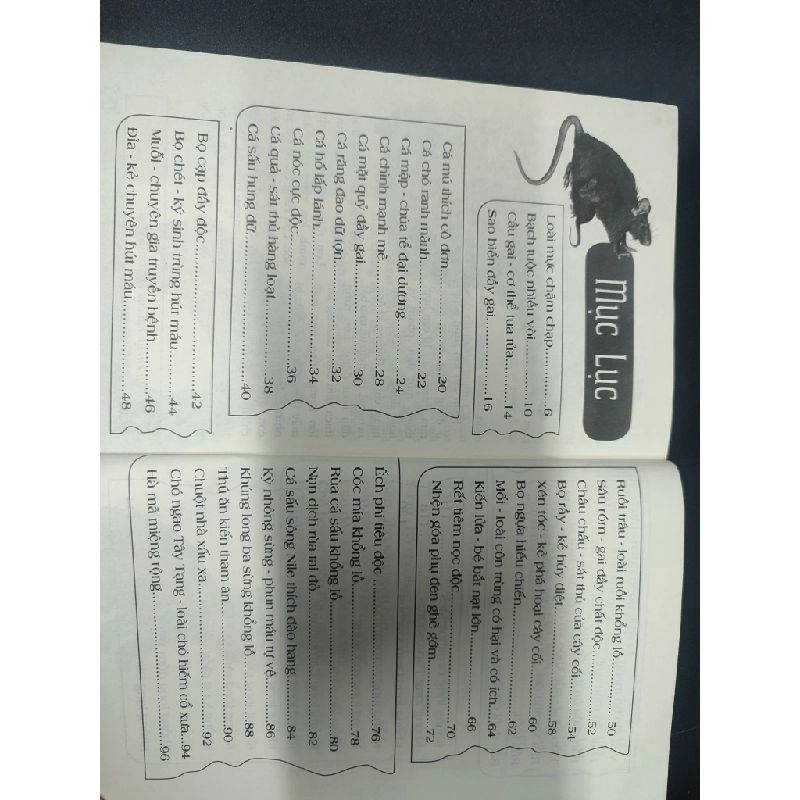 Mục Lục
Loài mực chậm chạp...............6
Bạch tuộc nhiều vòi...............10
Cầu gai - cơ thể tua tủa.........14
Sao biển đầy gai.................16
Cá mú thích cô đơn...............20
Cá chó ranh mãnh...............22
Cá mập - chúa tể đại dương.........24
Cá chình mạnh mẽ...............28
Cá mặt quỷ đầy gai...............30
Cá răng đao dữ tợn...............32
Cá hố lấp lánh...............34
Cá nóc cực độc...............36
Cá quả - sát thủ hàng loạt.........38
Cá sấu hung dữ...............40
Bọ cạp đầy độc...............42
Bọ chét - ký sinh trùng hút máu.........44
Muỗi - chuyên gia truyền bệnh.........46
Đỉa - kẻ chuyên hút máu.........48
Ruồi trâu - loài ruồi khổng lồ.........50
Sâu róm - gai đầy chất độc.........52
Châu chấu - sát thủ của cây cối.........54
Bọ rầy - kẻ hủy diệt...............58
Xén tóc - kẻ phá hoại cây cối.........60
Bọ ngựa hiếu chiến...............62
Mối - loài côn trùng có hại và có ích....64
Kiến lửa - bé bắt nạt lớn.........66
Rết tiêm nọc độc...............70
Nhện góa phụ đen ghê gớm.........72
Ếch phi tiêu độc ...............76
Cóc mía khổng lồ...............78
Rùa cá sấu khổng lồ...............80
Nạn dịch rùa tai đỏ...............82
Cá sấu sông Nile thích đào hang.........84
Kỳ nhông sừng - phun máu tự vệ.........86
Khủng long ba sừng khổng lồ.........88
Thú ăn kiến tham ăn...............90
Chuột nhà xấu xa...............92
Chó ngao Tây Tạng - loài chó hiếm cổ xưa...94
Hà mã miệng rộng...............96